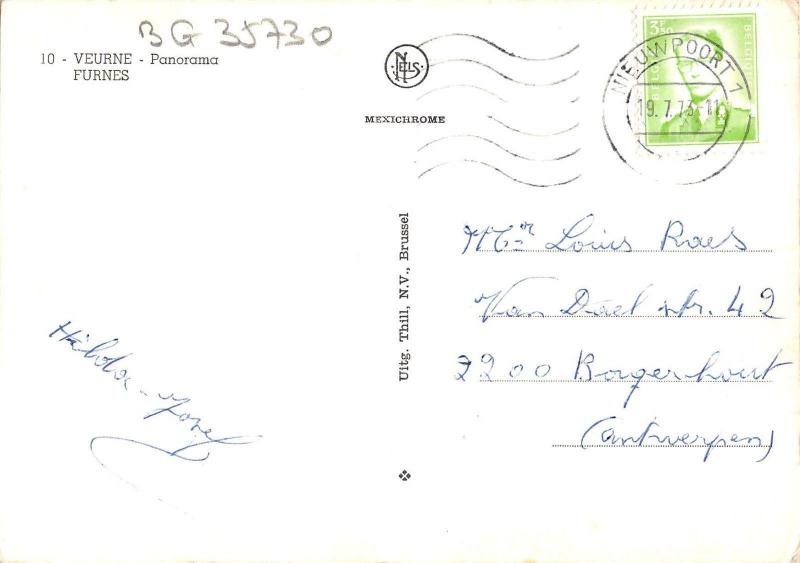 BG 35730
10 - VEURNE - Panorama
FURNES
NELS
MEXICHROME
3F50
BELGIE BELGIQUE
NIEUWPOORT 1
19.7.73-11
Uitg. Thill, N.V., Brussel
Mr Louis Raes
Van Dael str. 42
2200 Borgerhout
(Antwerpen)
Hilda - Jozef